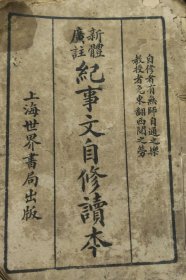 自修者有無師自通之樂
教授者免東翻西閱之勞
新體
廣註
紀事文自修讀本
上海世界書局出版